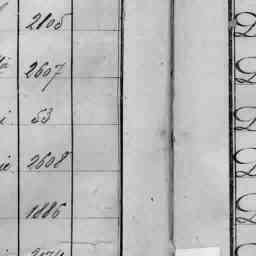 2105 D
2607 D
i 53 D
ie 2608 D
1886 D
D